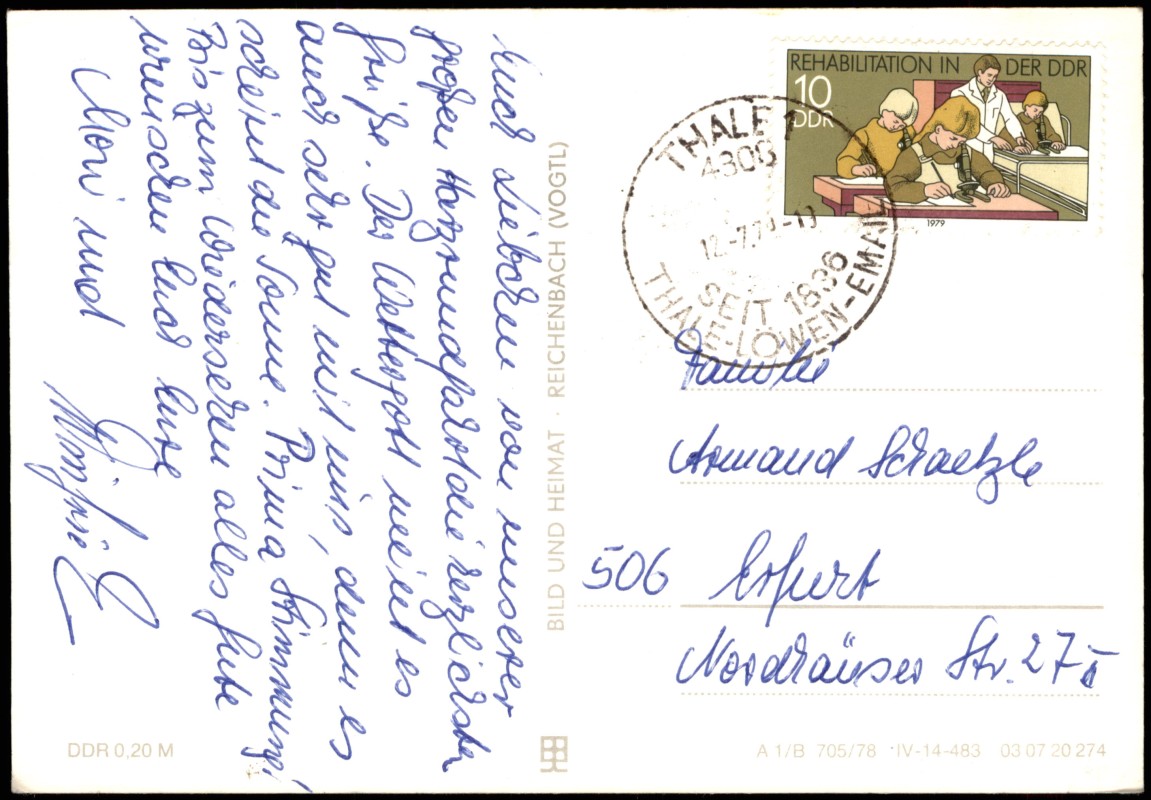 Euch Lieben von unserer
großen Harzrundfahrt die herzlichsten
Grüße. Der Wettergott meint es
auch sehr gut mit uns, denn es
scheint die Sonne. Prima Stimmung!
Bis zum Wiedersehen alles Gute
wünschen Euch Eure
Moni und
BILD UND HEIMAT · REICHENBACH (VOGTL)
REHABILITATION IN DER DDR
10
DDR
1979
THALE 1
4308
12.-7.79
SEIT 1836
THALE-LÖWEN-EMAIL
Familie
Armand Schaetzle
506 Erfurt
Nordhäuser Str. 27
DDR 0,20 M
A 1/B 705/78 IV-14-483 03 07 20 274